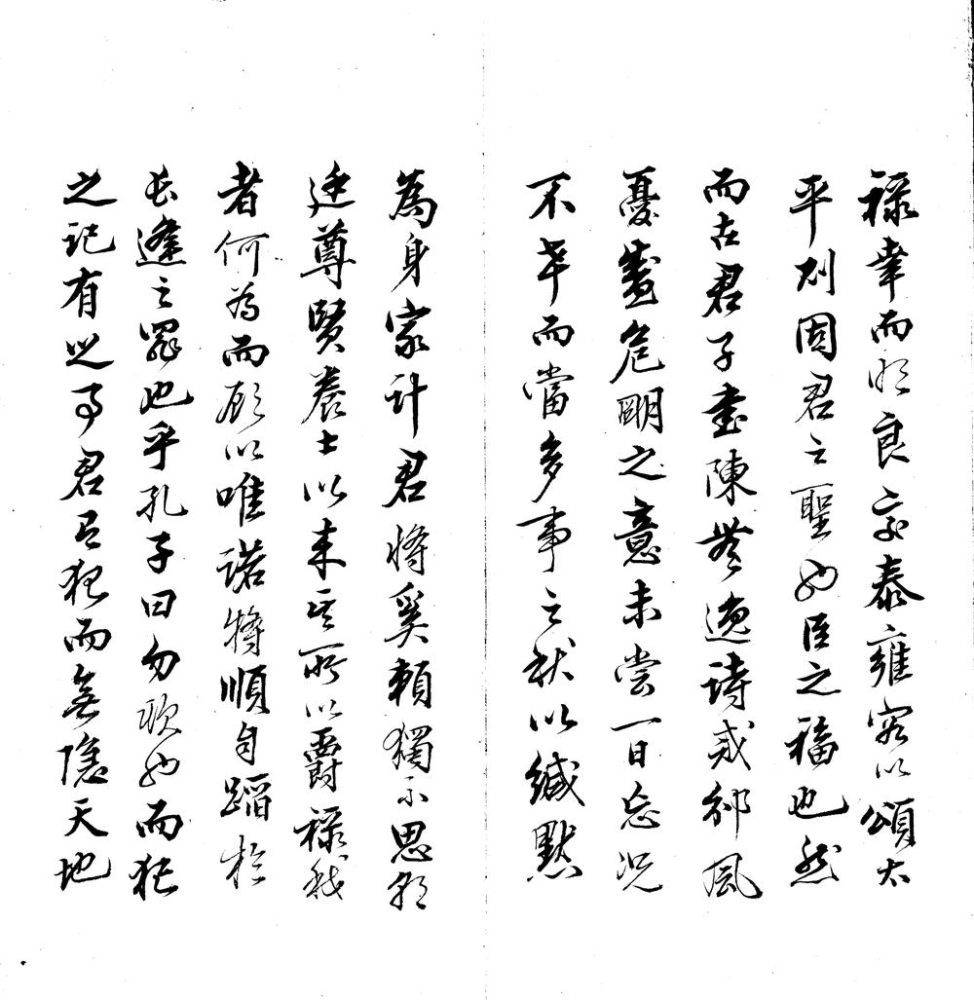 祿幸而明良交泰雍容以頌太
平則固君之聖也臣之福也然
而在君子畫陳無逸詩戒邠風
憂盛危明之意未嘗一日忘况
不幸而當多事之秋以緘默
為身家計君將奚賴獨不思朝
廷尊賢養士以來其所以爵祿我
者何為而顧以唯諾將順自蹈於
長逢之罪也乎孔子曰勿欺也而犯
之記有之事君有犯而無隱天地